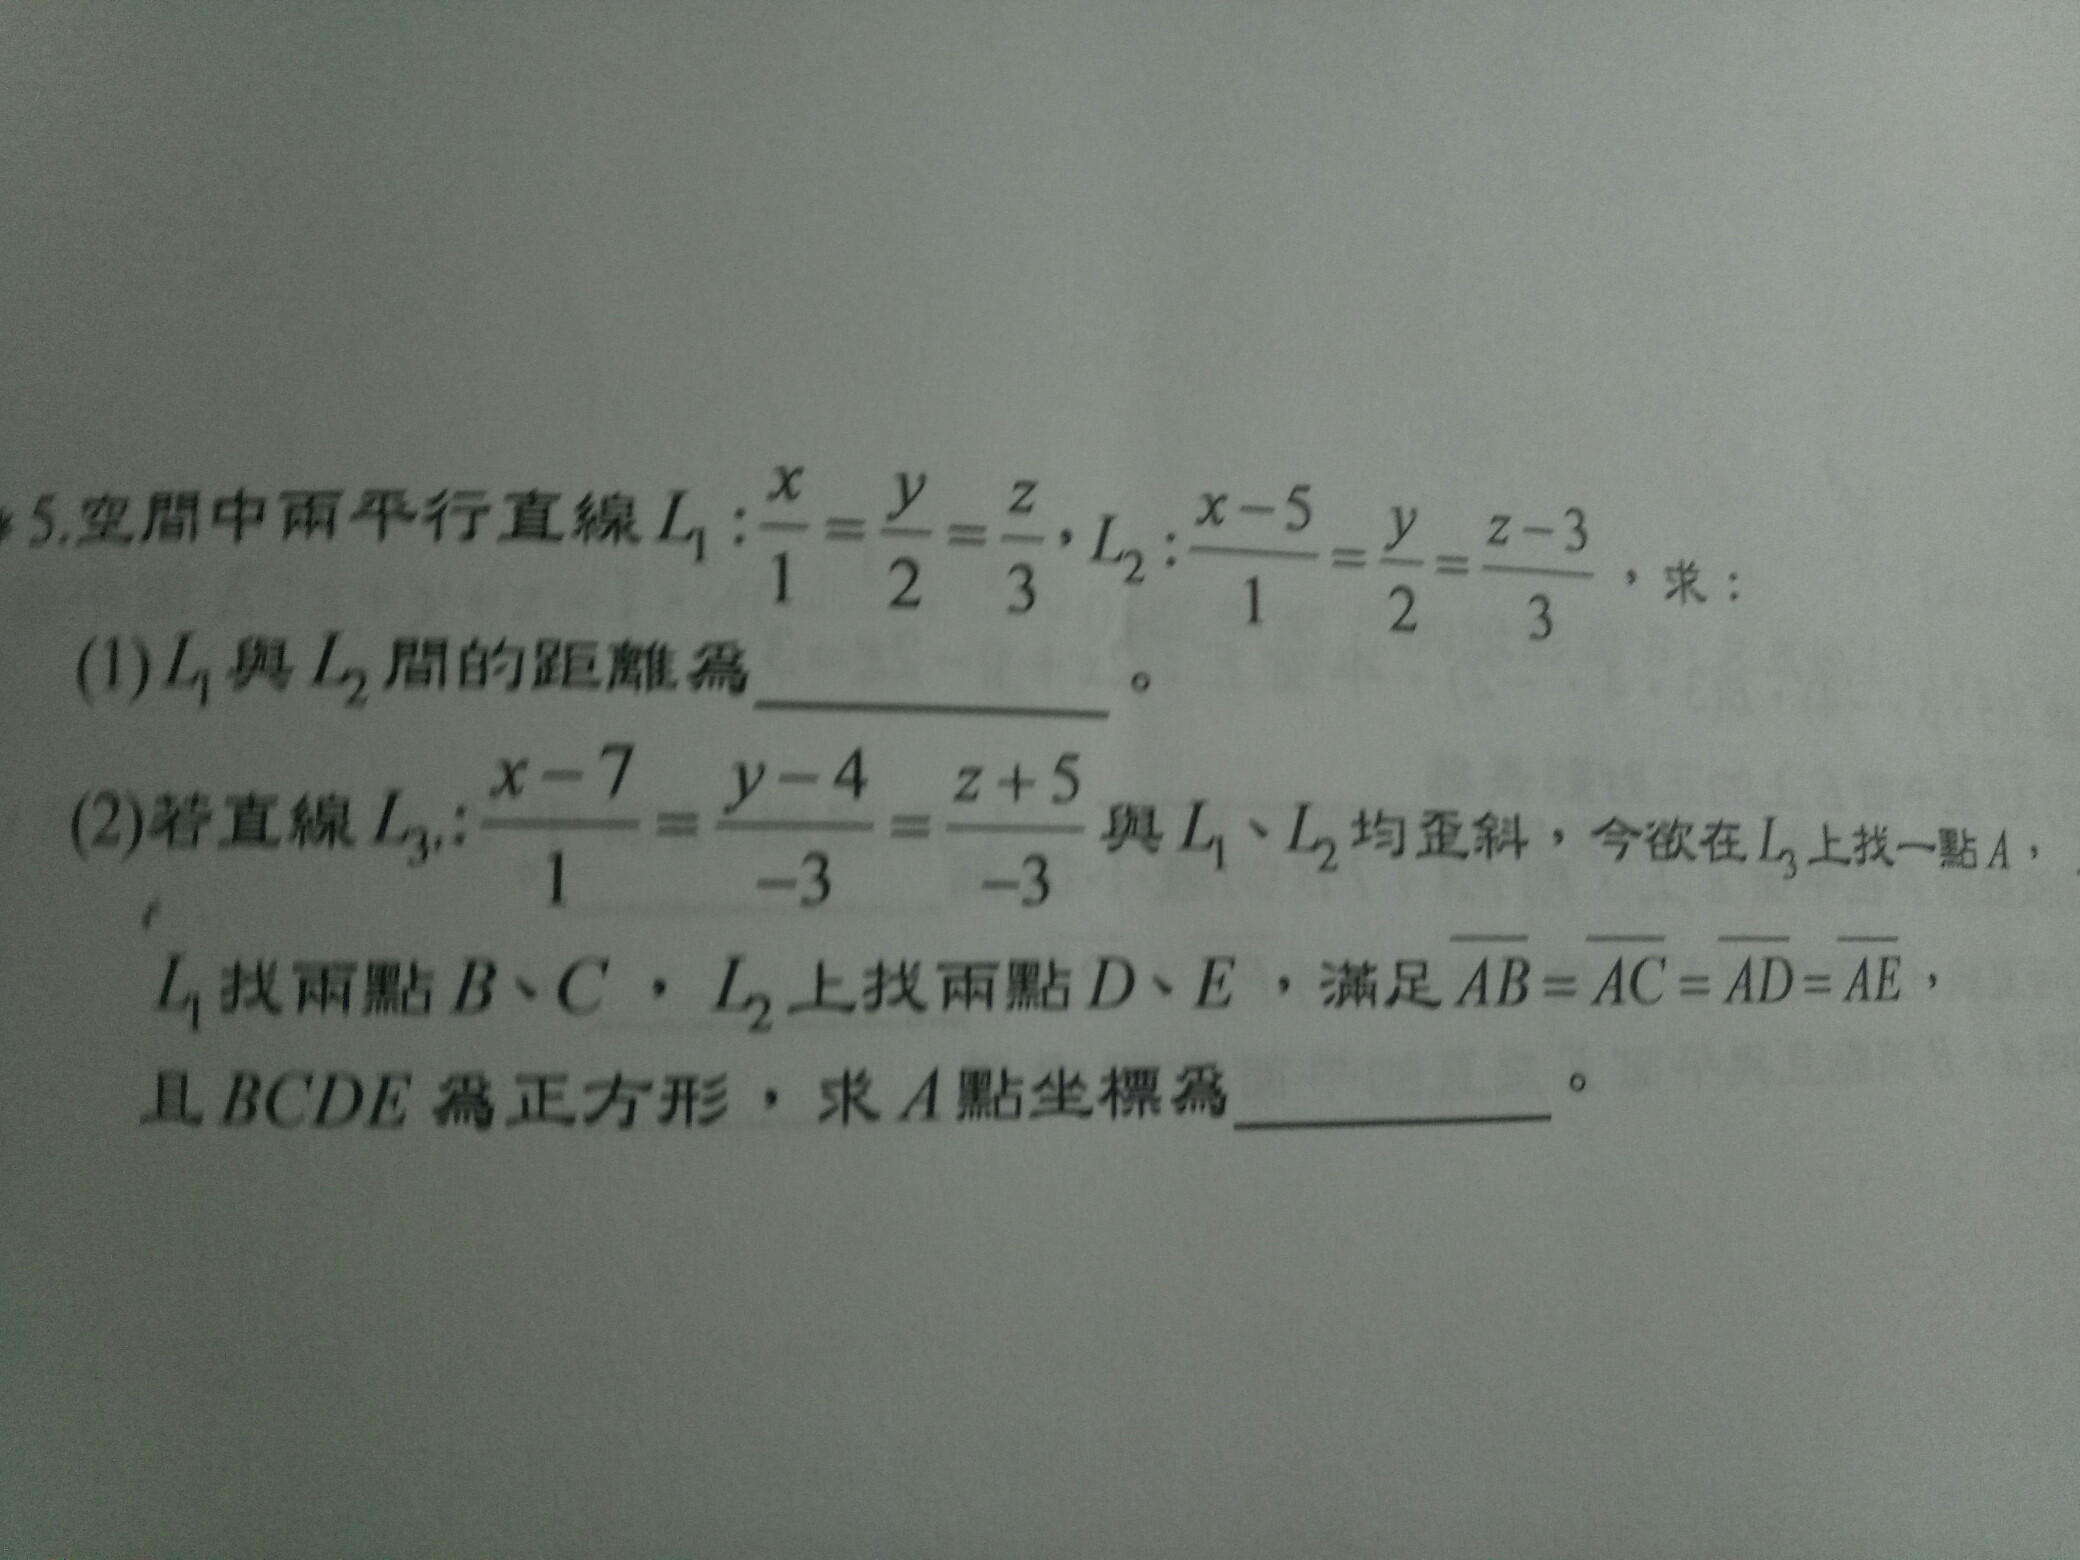 5.空間中兩平行直線 L₁ : x/1 = y/2 = z/3，L₂ : (x−5)/1 = y/2 = (z−3)/3，求：
(1) L₁ 與 L₂ 間的距離為________。
(2)若直線 L₃ : (x−7)/1 = (y−4)/−3 = (z+5)/−3 與 L₁、L₂ 均歪斜，今欲在 L₃ 上找一點 A，
L₁ 找兩點 B、C，L₂ 上找兩點 D、E，滿足 A̅B̅ = A̅C̅ = A̅D̅ = A̅E̅，
且 BCDE 為正方形，求 A 點坐標為________。